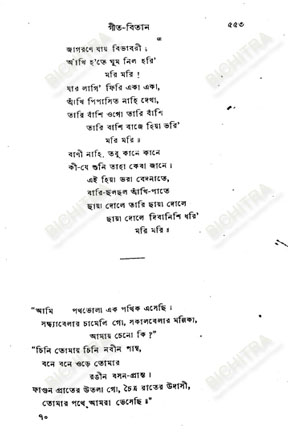 গীত-বিতান
৫৫৩
জাগরণে যায় বিভাবরী ;
আঁখি হ'তে ঘুম নিল হরি'
মরি মরি !
যার লাগি' ফিরি একা একা,
আঁখি পিপাসিত নাহি দেখা,
তারি বাঁশি ওগো তারি বাঁশি
তারি বাঁশি বাজে হিয়া ভরি'
মরি মরি ॥
বাণী নাহি, তবু কানে কানে
কী-যে শুনি তাহা কেবা জানে ।
এই হিয়া ভরা বেদনাতে,
বারি-ছলছল আঁখি-পাতে
ছায়া দোলে তারি ছায়া দোলে
ছায়া দোলে দিবানিশি ধরি'
মরি মরি ॥
"আমি পথভোলা এক পথিক এসেছি ।
সন্ধ্যাবেলার চামেলি গো, সকালবেলার মল্লিকা,
আমায় চেনো কি ?"
"চিনি তোমায় চিনি নবীন পান্থ,
বনে বনে ওড়ে তোমার
রঙীন বসন-প্রান্ত ।
ফাগুন প্রাতের উতলা গো, চৈত্র রাতের উদাসী,
তোমার পথে আমরা ভেসেছি ॥"
৭০
BICHITRA
BICHITRA
BICHITRA
BICHITRA
BICHITRA
BICHITRA